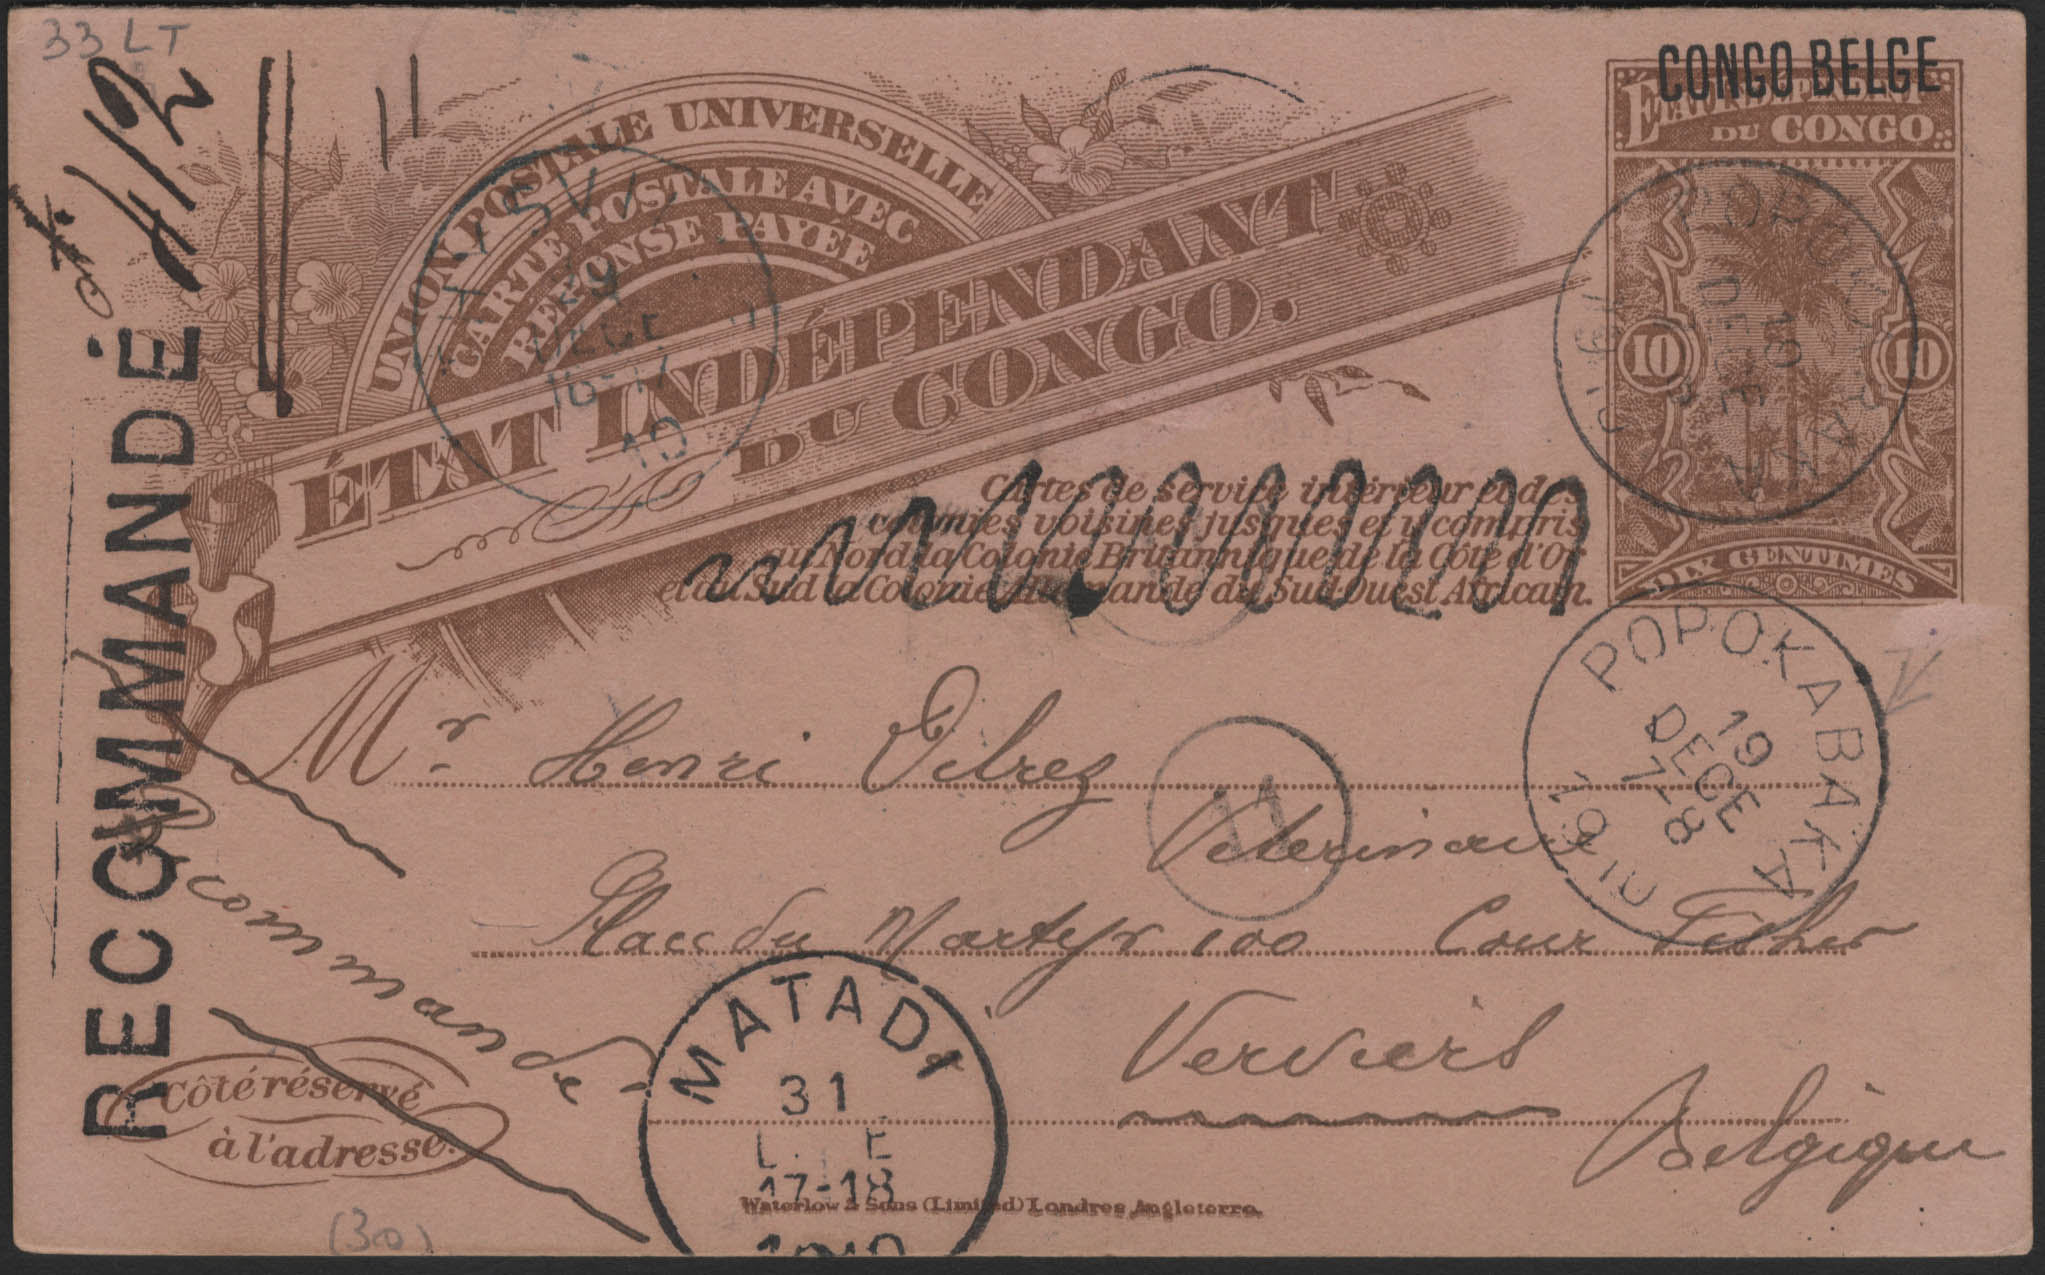 33 LT
CONGO BELGE
ÉTAT INDÉPENDANT
DU CONGO
10 10
DIX CENTIMES
UNION POSTALE UNIVERSELLE
CARTE POSTALE AVEC
RÉPONSE PAYÉE
ÉTAT INDÉPENDANT
DU CONGO.
Cartes de service intérieur et des
colonies voisines jusques et y compris
au Nord la Colonie Britannique de la Côte d'Or
et au Sud la Colonie Allemande du Sud-Ouest Africain.
RECOMMANDÉ
412
29
DECE
16-17
10
POPOKABAKA
19
DECE
POPOKABAKA
19
DECE
7-8
1910
Mr Henri Delrez
11
Place du Martyr 100 Cour Fisher
Verviers
Belgique
Recommandé
Côté réservé
à l'adresse.
MATADI
31
17-18
1910
Waterlow & Sons (Limited) Londres Angleterre.
(30)